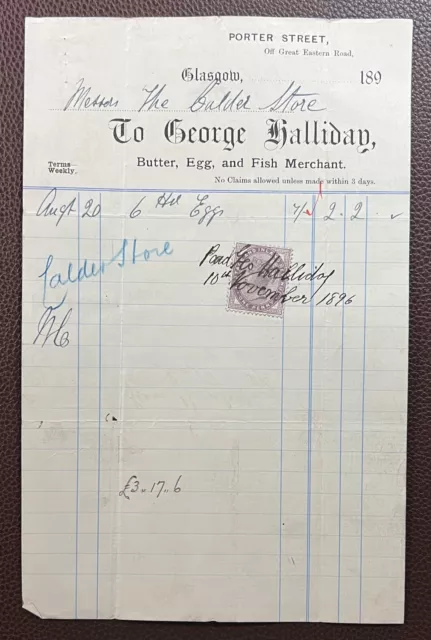 PORTER STREET,
Off Great Eastern Road,
Glasgow, 189
Messrs The Calder Store
To George Halliday,
Butter, Egg, and Fish Merchant.
Terms
Weekly.
No Claims allowed unless made within 3 days.
Augt 20 6 Hd Eggs 7/ 2 . 2 .
Calder Store
Paid Geo Halliday
10th November 1896
£3 .. 17 .. 6